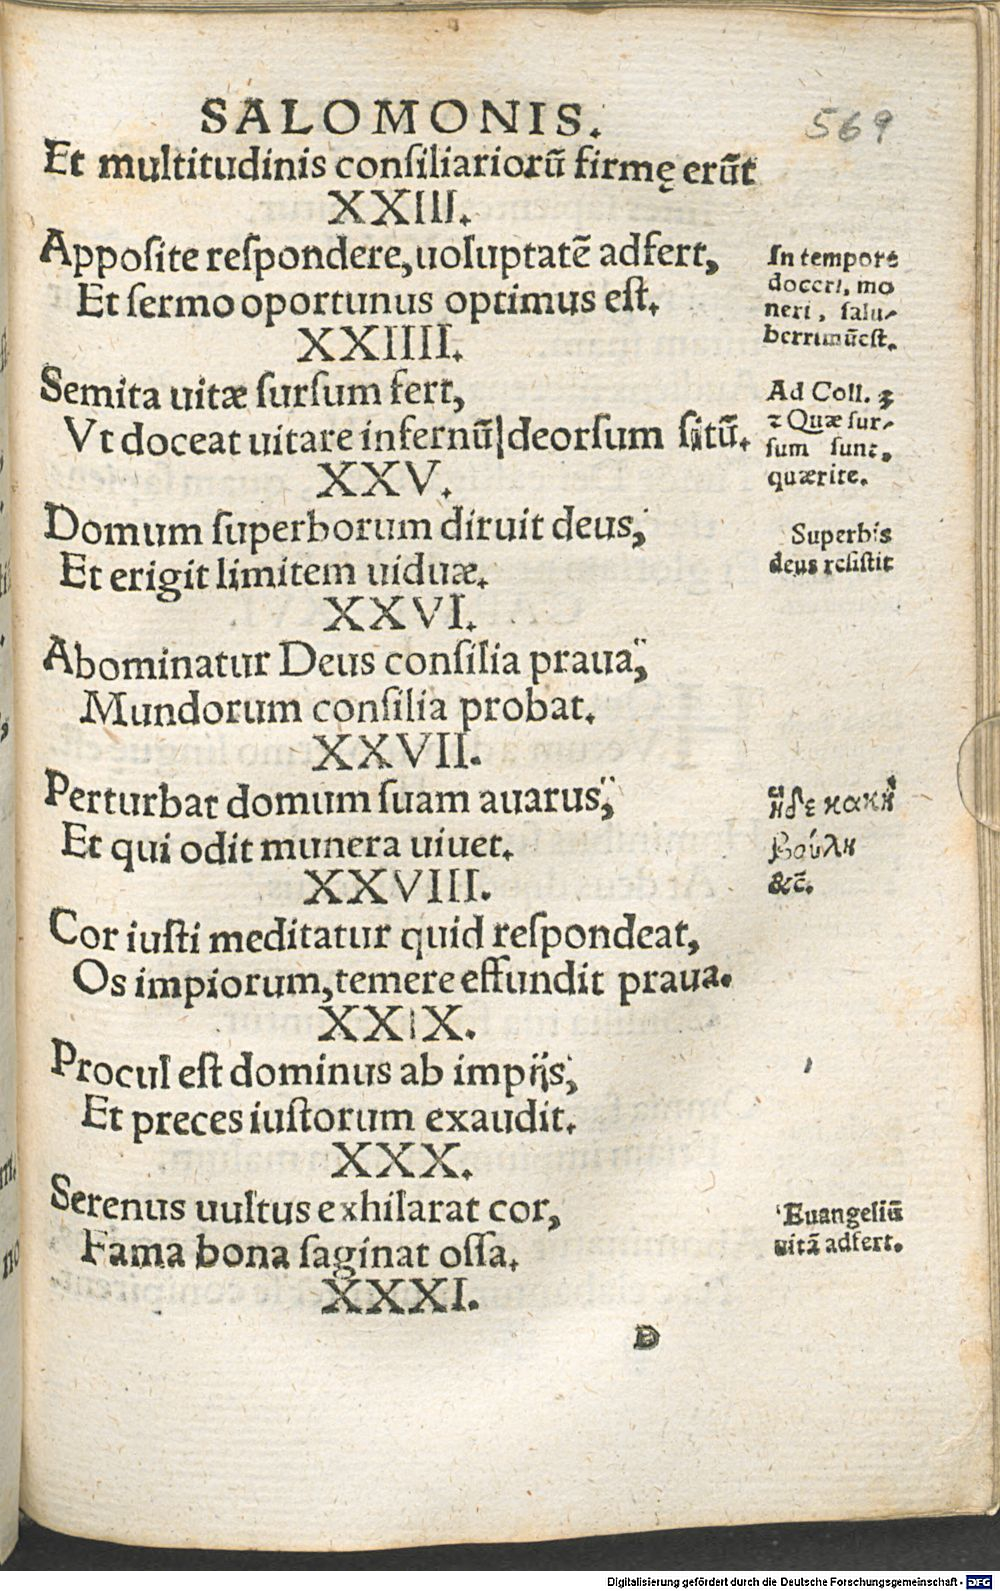 SALOMONIS.
569
Et multitudinis consiliariorū firmę erūt
XXIII.
Apposite respondere, uoluptatē adfert,
Et sermo oportunus optimus est.
In tempore
doceri, mo
neri, salu-
berrimūest.
XXIIII.
Semita uitæ sursum fert,
Vt doceat uitare infernū deorsum sitū.
Ad Coll. 3
Quæ sur-
sum sunt,
quærite.
XXV.
Domum superborum diruit deus,
Et erigit limitem uiduæ.
Superbis
deus resistit
XXVI.
Abominatur Deus consilia praua,
Mundorum consilia probat.
XXVII.
Perturbat domum suam auarus,
Et qui odit munera uiuet.
ἡδε κακὴ
βούλη
&c̄.
XXVIII.
Cor iusti meditatur quid respondeat,
Os impiorum, temere effundit praua.
XXIX.
Procul est dominus ab impijs,
Et preces iustorum exaudit.
XXX.
Serenus uultus exhilarat cor,
Fama bona saginat ossa.
Euangeliū
uitā adfert.
XXXI.
D
Digitalisierung gefördert durch die Deutsche Forschungsgemeinschaft - DFG